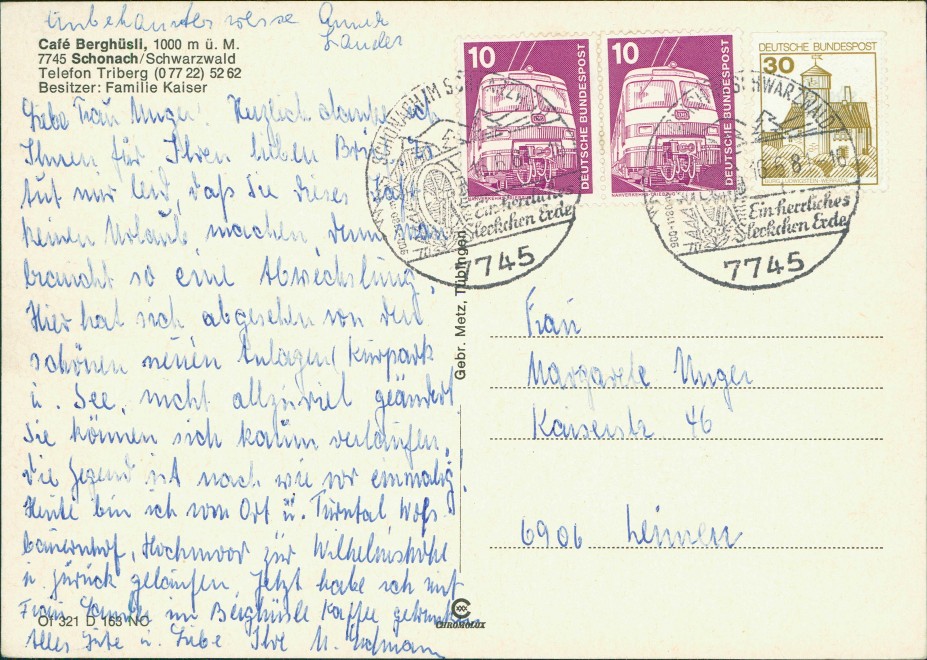 unbekannterweise Anna
Lander
Café Berghüsli, 1000 m ü. M.
7745 Schonach/Schwarzwald
Telefon Triberg (0 77 22) 52 62
Besitzer: Familie Kaiser
Liebe Frau Unger! Herzlich danke ich
Ihnen für Ihren lieben Brief. Es
tut mir leid, daß Sie dieses Jahr
keinen Urlaub machen denn man
braucht so eine Abwechslung.
Hier hat sich abgesehen von den
schönen neuen Anlagen (Kurpark
u. See, nicht allzuviel geändert
Sie können sich kaum verlaufen.
Die Gegend ist nach wie vor einmalig!
Heute bin ich vom Ort ü. Turntal
bauernhof, Hochmoor zur Wilhelmshöhe
u. zurück gelaufen. Jetzt habe ich mit
Frau im Berghüsle Kaffee getrunken
Alles Gute u. Liebe Ihre
Of 321 D 153 NO
Gebr. Metz, Tübingen
CHROMOLUX
10
DEUTSCHE BUNDESPOST
10
DEUTSCHE BUNDESPOST
DEUTSCHE BUNDESPOST
30
SCHONACH IM SCHWARZW
Ein herrliches
Fleckchen Erde
7745
SCHWARZWALD
Ein herrliches
Fleckchen Erde
7745
Frau
Margarete Unger
Kaiserstr 46
6906 Leimen